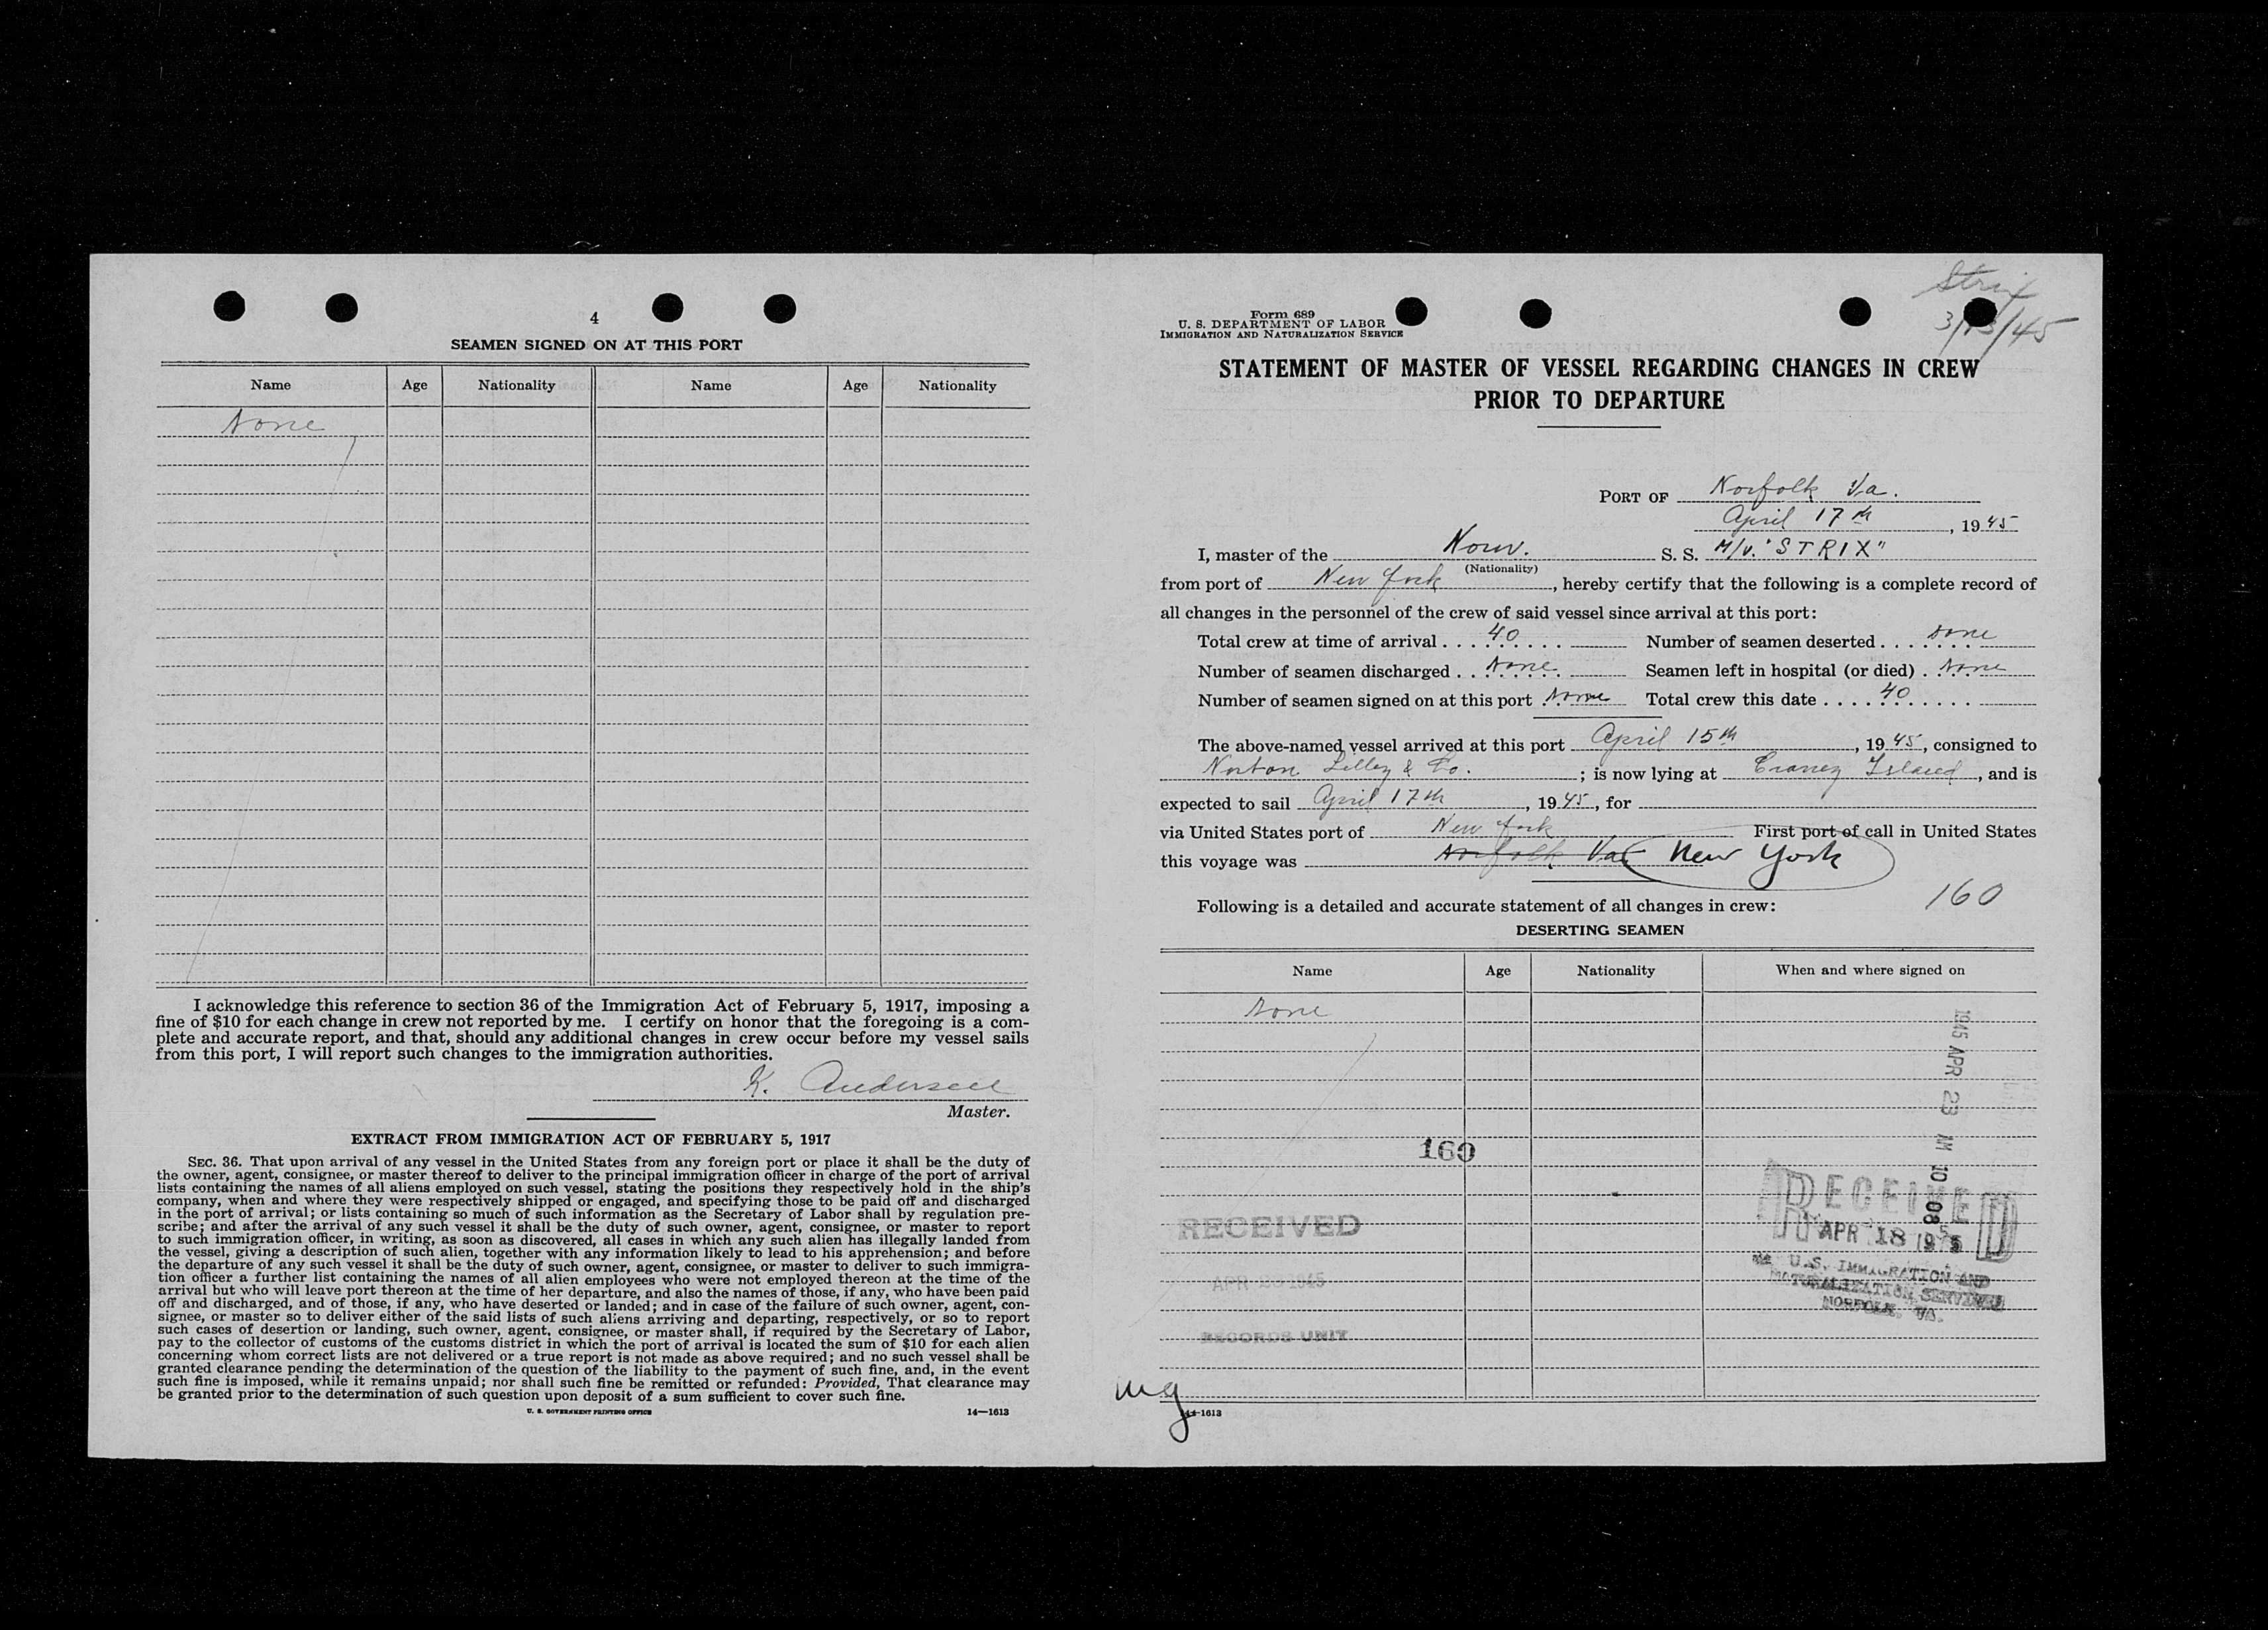 4
SEAMEN SIGNED ON AT THIS PORT
Name Age Nationality Name Age Nationality
None
I acknowledge this reference to section 36 of the Immigration Act of February 5, 1917, imposing a
fine of $10 for each change in crew not reported by me. I certify on honor that the foregoing is a com-
plete and accurate report, and that, should any additional changes in crew occur before my vessel sails
from this port, I will report such changes to the immigration authorities.
K. Andersen
Master.
EXTRACT FROM IMMIGRATION ACT OF FEBRUARY 5, 1917
SEC. 36. That upon arrival of any vessel in the United States from any foreign port or place it shall be the duty of
the owner, agent, consignee, or master thereof to deliver to the principal immigration officer in charge of the port of arrival
lists containing the names of all aliens employed on such vessel, stating the positions they respectively hold in the ship's
company, when and where they were respectively shipped or engaged, and specifying those to be paid off and discharged
in the port of arrival; or lists containing so much of such information as the Secretary of Labor shall by regulation pre-
scribe; and after the arrival of any such vessel it shall be the duty of such owner, agent, consignee, or master to report
to such immigration officer, in writing, as soon as discovered, all cases in which any such alien has illegally landed from
the vessel, giving a description of such alien, together with any information likely to lead to his apprehension; and before
the departure of any such vessel it shall be the duty of such owner, agent, consignee, or master to deliver to such immigra-
tion officer a further list containing the names of all alien employees who were not employed thereon at the time of the
arrival but who will leave port thereon at the time of her departure, and also the names of those, if any, who have been paid
off and discharged, and of those, if any, who have deserted or landed; and in case of the failure of such owner, agent, con-
signee, or master so to deliver either of the said lists of such aliens arriving and departing, respectively, or so to report
such cases of desertion or landing, such owner, agent, consignee, or master shall, if required by the Secretary of Labor,
pay to the collector of customs of the customs district in which the port of arrival is located the sum of $10 for each alien
concerning whom correct lists are not delivered or a true report is not made as above required; and no such vessel shall be
granted clearance pending the determination of the question of the liability to the payment of such fine, and, in the event
such fine is imposed, while it remains unpaid; nor shall such fine be remitted or refunded: Provided, That clearance may
be granted prior to the determination of such question upon deposit of a sum sufficient to cover such fine.
U. S. GOVERNMENT PRINTING OFFICE 14—1613
Strix
3/13/45
Form 689
U. S. DEPARTMENT OF LABOR
IMMIGRATION AND NATURALIZATION SERVICE
STATEMENT OF MASTER OF VESSEL REGARDING CHANGES IN CREW
PRIOR TO DEPARTURE
PORT OF Norfolk Va.
April 17th, 1945
I, master of the Norw. S. S. M/v. "STRIX"
(Nationality)
from port of New York, hereby certify that the following is a complete record of
all changes in the personnel of the crew of said vessel since arrival at this port:
Total crew at time of arrival 40 Number of seamen deserted None
Number of seamen discharged None Seamen left in hospital (or died) None
Number of seamen signed on at this port None Total crew this date 40
The above-named vessel arrived at this port April 15th, 1945, consigned to
Norton Lilley & Co.; is now lying at Craney Island, and is
expected to sail April 17th, 1945, for
via United States port of New York First port of call in United States
this voyage was Norfolk Va New York
160
Following is a detailed and accurate statement of all changes in crew:
DESERTING SEAMEN
Name Age Nationality When and where signed on
None
1945 APR 23 AM 10 08
160
RECEIVED
APR 18 1945
U.S. IMMIGRATION AND
NATURALIZATION SERVICE
NORFOLK, VA.
RECEIVED
APR 1945
RECORDS UNIT
mg
14-1613